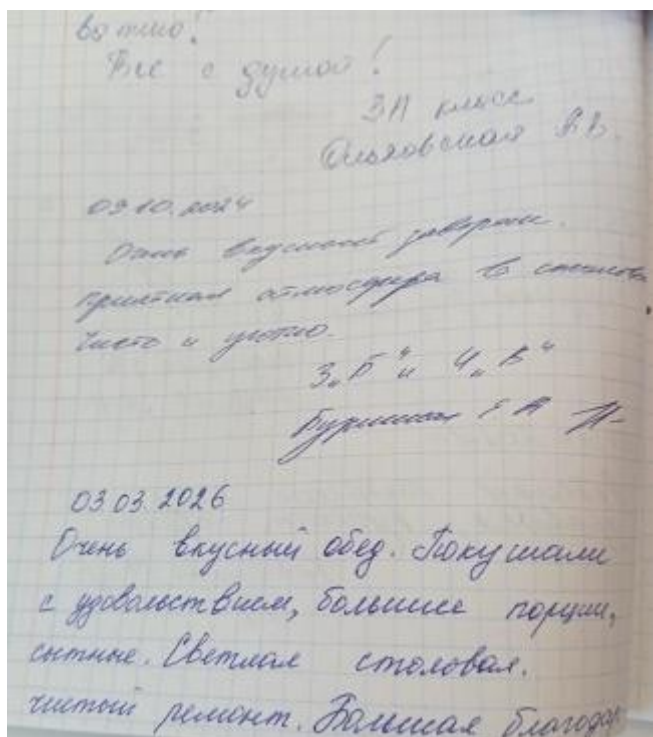 Все с душой!
3А класс
09.10.2024
Очень вкусный завтрак.
приятная атмосфера в столовой
Чисто и уютно.
3„Б“ и 4„В“
03.03.2026
Очень вкусный обед. Покушали
с удовольствием, большие порции,
сытные. Светлая столовая.
чистый ремонт. Большая благодар